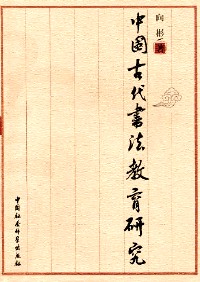 向彬
中国古代书法教育研究
中国社会科学出版社